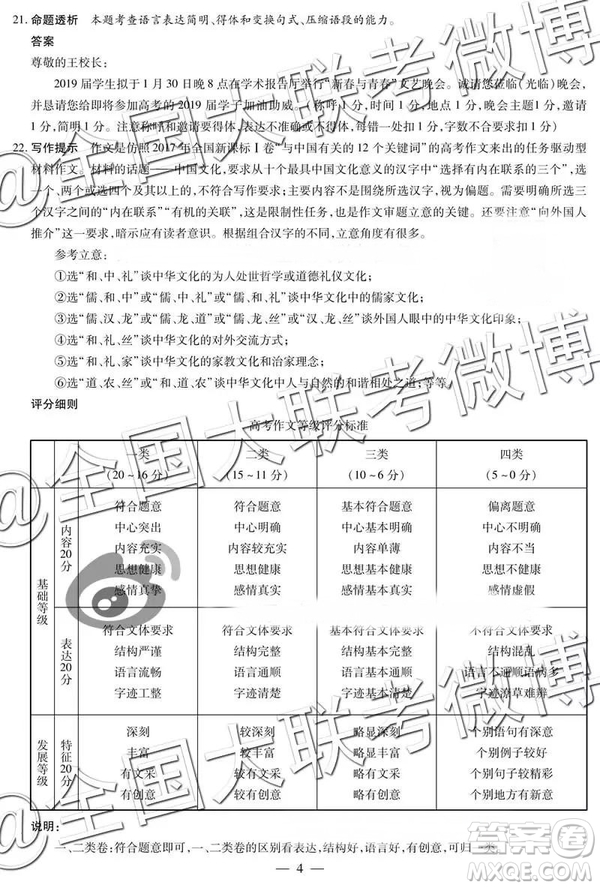 21. 命题透析　本题考查语言表达简明、得体和变换句式、压缩语段的能力。
答案
尊敬的王校长:
2019届学生拟于1月30日晚8点在学术报告厅举行“新春与青春”文艺晚会。诚请您莅临(光临)晚会,
并恳请您给即将参加高考的2019届学子加油助威。(称呼1分,时间1分,地点1分,晚会主题1分,邀请
1分,简明1分。注意称呼和邀请要得体,表达不准确或不得体,每处扣1分,字数不合要求扣1分)
22. 写作提示　作文是仿照2017年全国新课标Ⅰ卷“与中国有关的12个关键词”的高考作文来出的任务驱动型
材料作文。材料的话题——中华文化,要求从十个最具中国文化意义的汉字中“选择有内在联系的三个”,选
一个、两个或选四个及以上,不符合写作要求。写作内容不是围绕所选汉字,视为偏题。需要特别注意,所选三
个汉字之间的“内在联系”“有机的关联”,这是限制性任务,也是作文审题立意的关键。还要注意“向外国人
推介”这一要求,暗示应有读者意识。根据组合汉字的不同,立意角度有很多。
参考立意:
①选“和、中、礼”谈中华文化的为人处世哲学或道德礼仪文化;
②选“儒、和、中”或“儒、中、礼”或“儒、礼、和”谈中华文化中的儒家文化;
③选“儒、汉、龙”或“儒、龙、道”或“儒、龙、丝”谈外国人眼中的中华文化印象;
④选“汉、龙、丝”谈中华文化的对外交流方式;
⑤选“和、家、礼”谈中华文化的家教文化和治家理念;
⑥选“道、农、丝”或“和、道、农”谈中华文化中人与自然的和谐相处之道;等等。
评分细则
高考作文等级评分标准
一类 二类 三类 四类
(20~16分) (15~11分) (10~6分) (5~0分)
基础等级
内容20分
符合题意 符合题意 基本符合题意 偏离题意
中心突出 中心明确 中心基本明确 中心不明确
内容充实 内容较充实 内容单薄 内容不当
思想健康 思想健康 思想基本健康 思想不健康
感情真挚 感情真实 感情基本真实 感情虚假
表达20分
符合文体要求 符合文体要求 基本符合文体要求 不符合文体要求
结构严谨 结构完整 结构基本完整 结构混乱
语言流畅 语言通顺 语言基本通顺 语言不通顺语病多
字迹工整 字迹清楚 字迹基本清楚 字迹潦草难辨
发展等级
特征20分
深刻 较深刻 略显深刻 个别语句有深意
丰富 较丰富 略显丰富 个别例子较好
有文采 较有文采 略有文采 个别语句较精彩
有创意 较有创意 略有创意 个别地方有创意
说明:
一、二类卷:符合题意即可,一、二类卷的区别看表达,结构好,语言好,有创意,可归一类
— 4 —
@全国大联考微博
答案圈
MXQE.COM